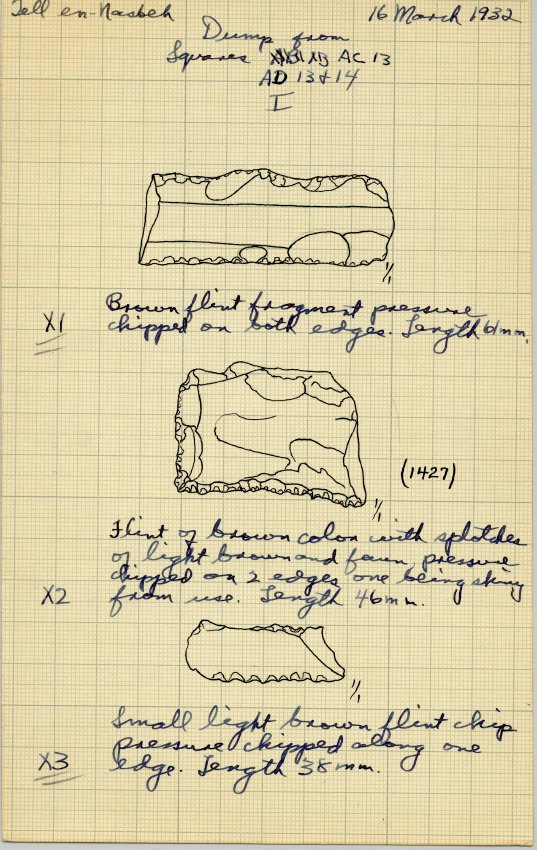 Tell en-Nasbeh 16 March 1932
Dump from
Squares AC 13
AD 13 & 14
I
1/1
X1 Brown flint fragment pressure
chipped on both edges. Length 61mm.
(1427)
1/1
Flint of brown color with splotches
of light brown and fawn, pressure
chipped on 2 edges, one being shiny
X2 from use. Length 46mm.
1/1
Small light brown flint chip
pressure chipped along one
X3 edge. Length 38mm.